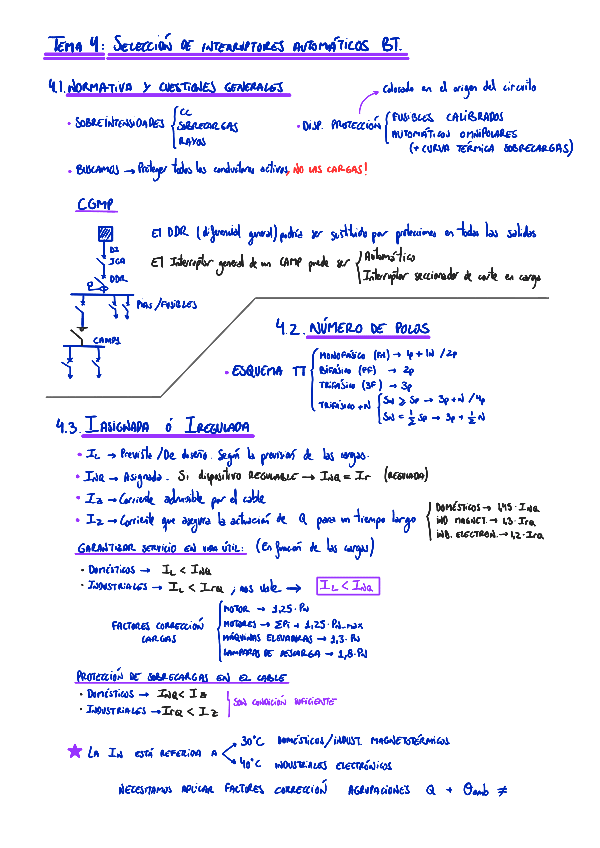 TEMA 4: SELECCIÓN DE INTERRUPTORES AUTOMÁTICOS BT.
4.1. NORMATIVA Y CUESTIONES GENERALES
Colocado en el origen del circuito
• SOBREINTENSIDADES
CC
SOBRECARGAS
RAYOS
• DISP. PROTECCIÓN
FUSIBLES CALIBRADOS
AUTOMÁTICOS OMNIPOLARES
(+ CURVA TÉRMICA SOBRECARGAS)
• BUSCAMOS → Proteger todos los conductores activos, NO LAS CARGAS!
CGMP
DI
IGA
DDR
PIAS/FUSIBLES
CAMP1
El DDR (diferencial general) podría ser sustituido por protecciones en todas las salidas
El Interruptor general de un CAMP puede ser
Automático
Interruptor seccionador de corte en carga
4.2. NÚMERO DE POLOS
• ESQUEMA TT
MONOFÁSICO (FN) → 1p + 1N / 2p
BIFÁSICO (FF) → 2p
TRIFÁSICO (3F) → 3p
TRIFÁSICO + N
SN ≥ SP → 3p + N / 4p
SN = 1/2 SP → 3p + 1/2 N
4.3. I ASIGNADA Ó I REGULADA
• IL → Prevista / De diseño. Según la previsión de las cargas.
• INQ → Asignada. Si dispositivo REGULABLE → INQ = Ir (REGULADA)
• IZ → Corriente admisible por el cable
• I2 → Corriente que asegura la actuación de Q para un tiempo largo
DOMÉSTICOS → 1,45 · INQ
IND MAGNET. → 1,3 · IrQ
IND. ELECTRON. → 1,2 · IrQ
GARANTIZAR SERVICIO EN VIDA ÚTIL: (En función de las cargas)
• DOMÉSTICOS → IL < INQ
• INDUSTRIALES → IL < IrQ ; nos vale → IL < INQ
FACTORES CORRECCIÓN
CARGAS
MOTOR → 1,25 · PN
MOTORES → ΣPi + 1,25 · PN_max
MÁQUINAS ELEVADORAS → 1,3 · PN
LÁMPARAS DE DESCARGA → 1,8 · PN
PROTECCIÓN DE SOBRECARGAS EN EL CABLE
• DOMÉSTICOS → INQ < IZ
• INDUSTRIALES → IrQ < IZ
SON CONDICIÓN SUFICIENTE
★ LA IN ESTÁ REFERIDA A
30°C DOMÉSTICOS/INDUST. MAGNETOTÉRMICOS
40°C INDUSTRIALES ELECTRÓNICOS
NECESITAMOS APLICAR FACTORES CORRECCIÓN AGRUPACIONES Q + θamb ≠